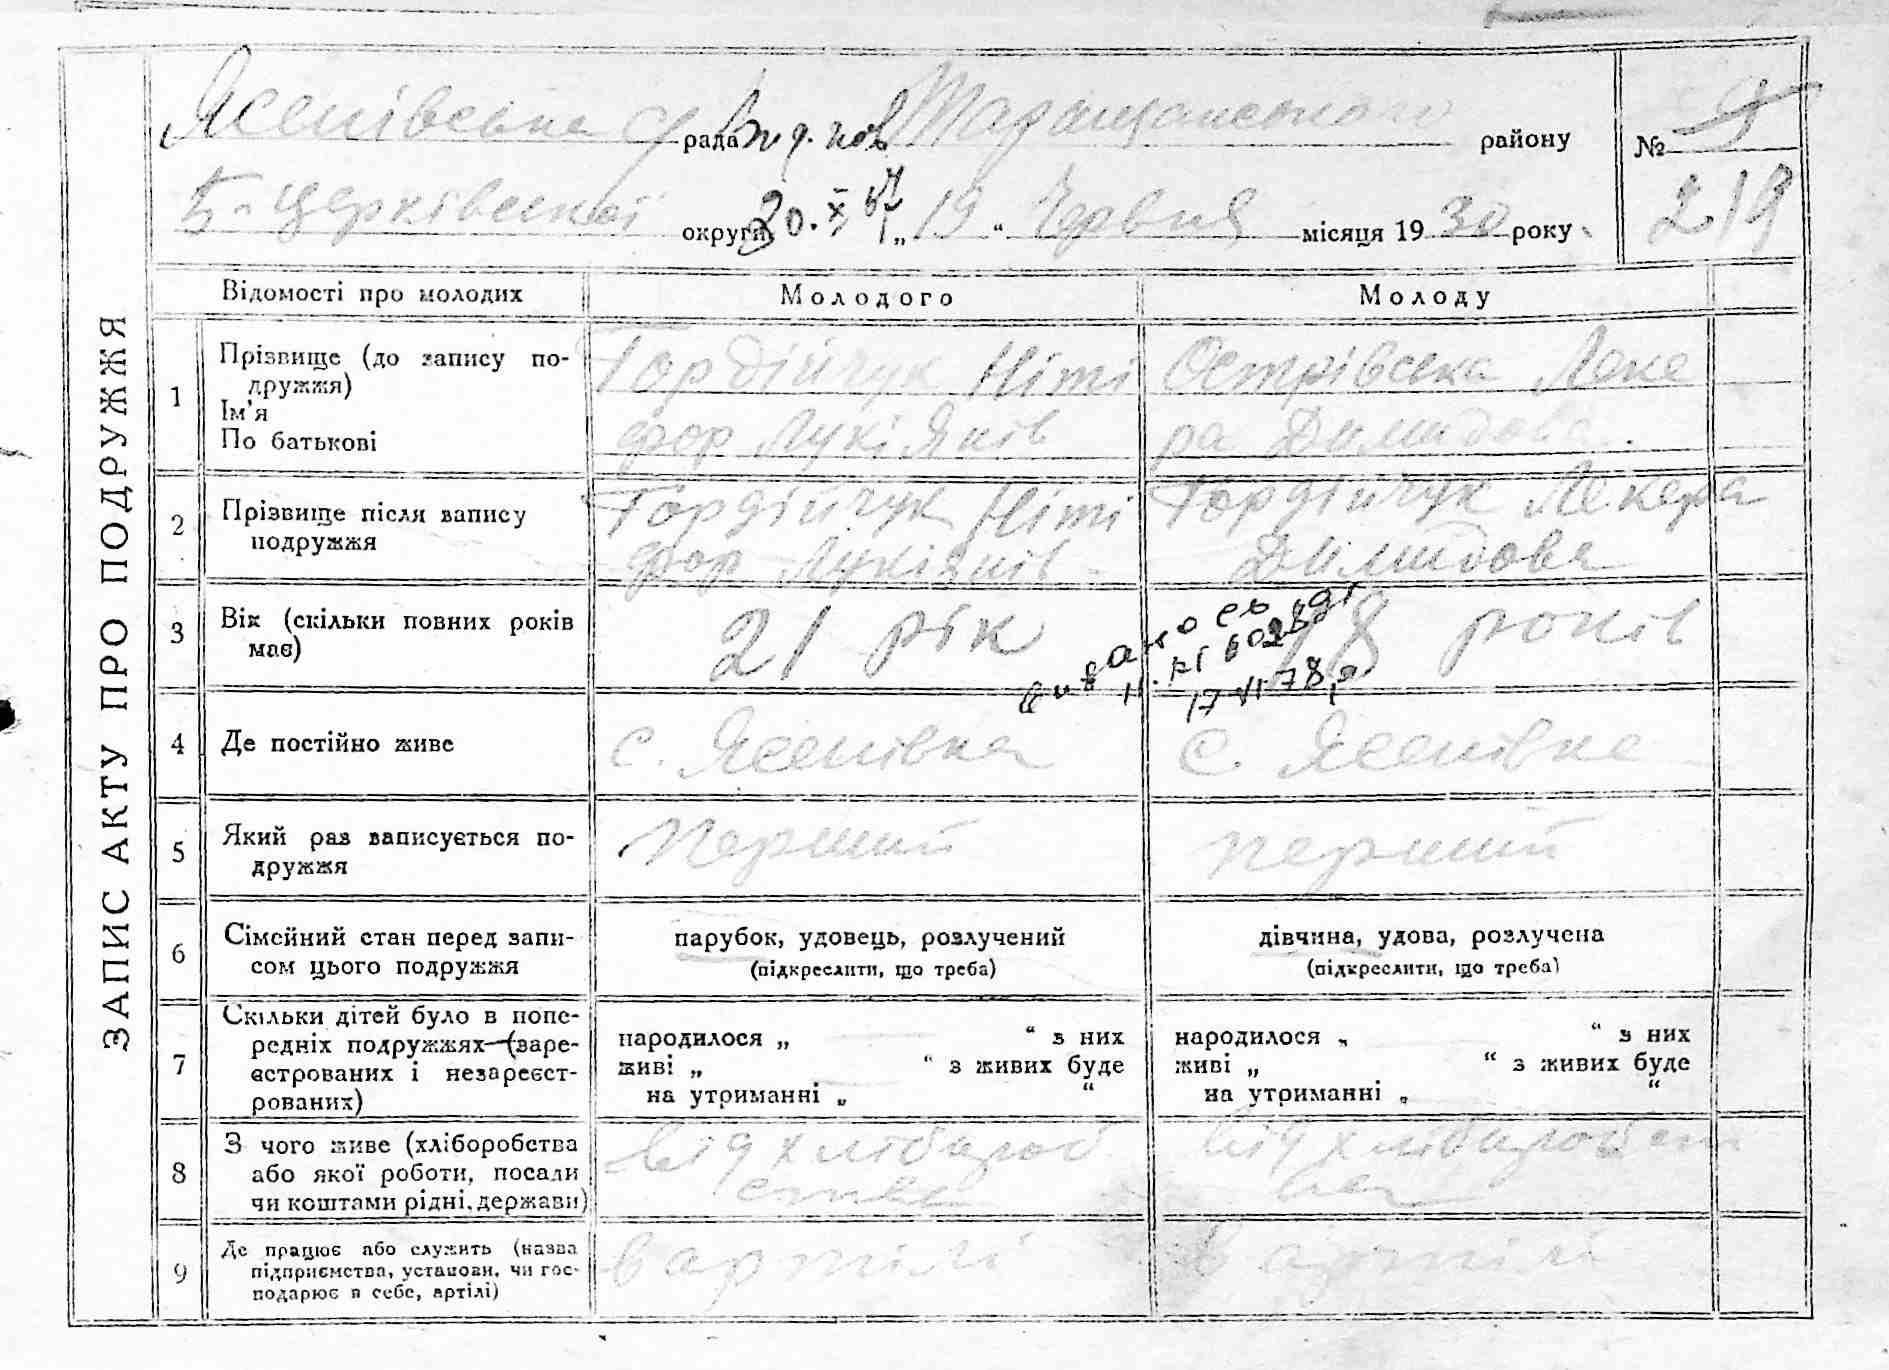 Ясенівська с/рада Таращанського району
№ 9
Б-Церківської округи „19“ Червня місяця 1930 року
219
Вид. пов
20.X 67
ЗАПИС АКТУ ПРО ПОДРУЖЖЯ
Відомості про молодих Молодого Молоду
1 Прізвище (до запису по-
дружжя)
Ім'я
По батькові
Гордійчук Ніті
фор Лукіянів
Острівська Лке
ра Димидова
2 Прізвище після запису
подружжя
Гордійчук Ніті
фор Лукіянів
Гордійчук Лекера
Димидова
3 Вік (скільки повних років
має)
21 рік
18 років
17 VII 78
4 Де постійно живе
с. Ясенівка
с. Ясенівка
5 Який раз записується по-
дружжя
перший
перший
6 Сімейний стан перед запи-
сом цього подружжя
парубок, удовець, розлучений
(підкреслити, що треба)
дівчина, удова, розлучена
(підкреслити, що треба)
7 Скільки дітей було в попе-
редніх подружжях (заре-
єстрованих і незареєст-
рованих)
народилося „ “ з них
живі „ “ з живих буде
на утриманні „ “
народилося „ “ з них
живі „ “ з живих буде
на утриманні „ “
8 З чого живе (хліборобства
або якої роботи, посади
чи коштами рідні, держави)
від хлібороб
ства
від хліборобст
ва
9 Де працює або служить (назва
підприємства, установи, чи гос-
подарює в себе, артілі)
в артілі
в артілі